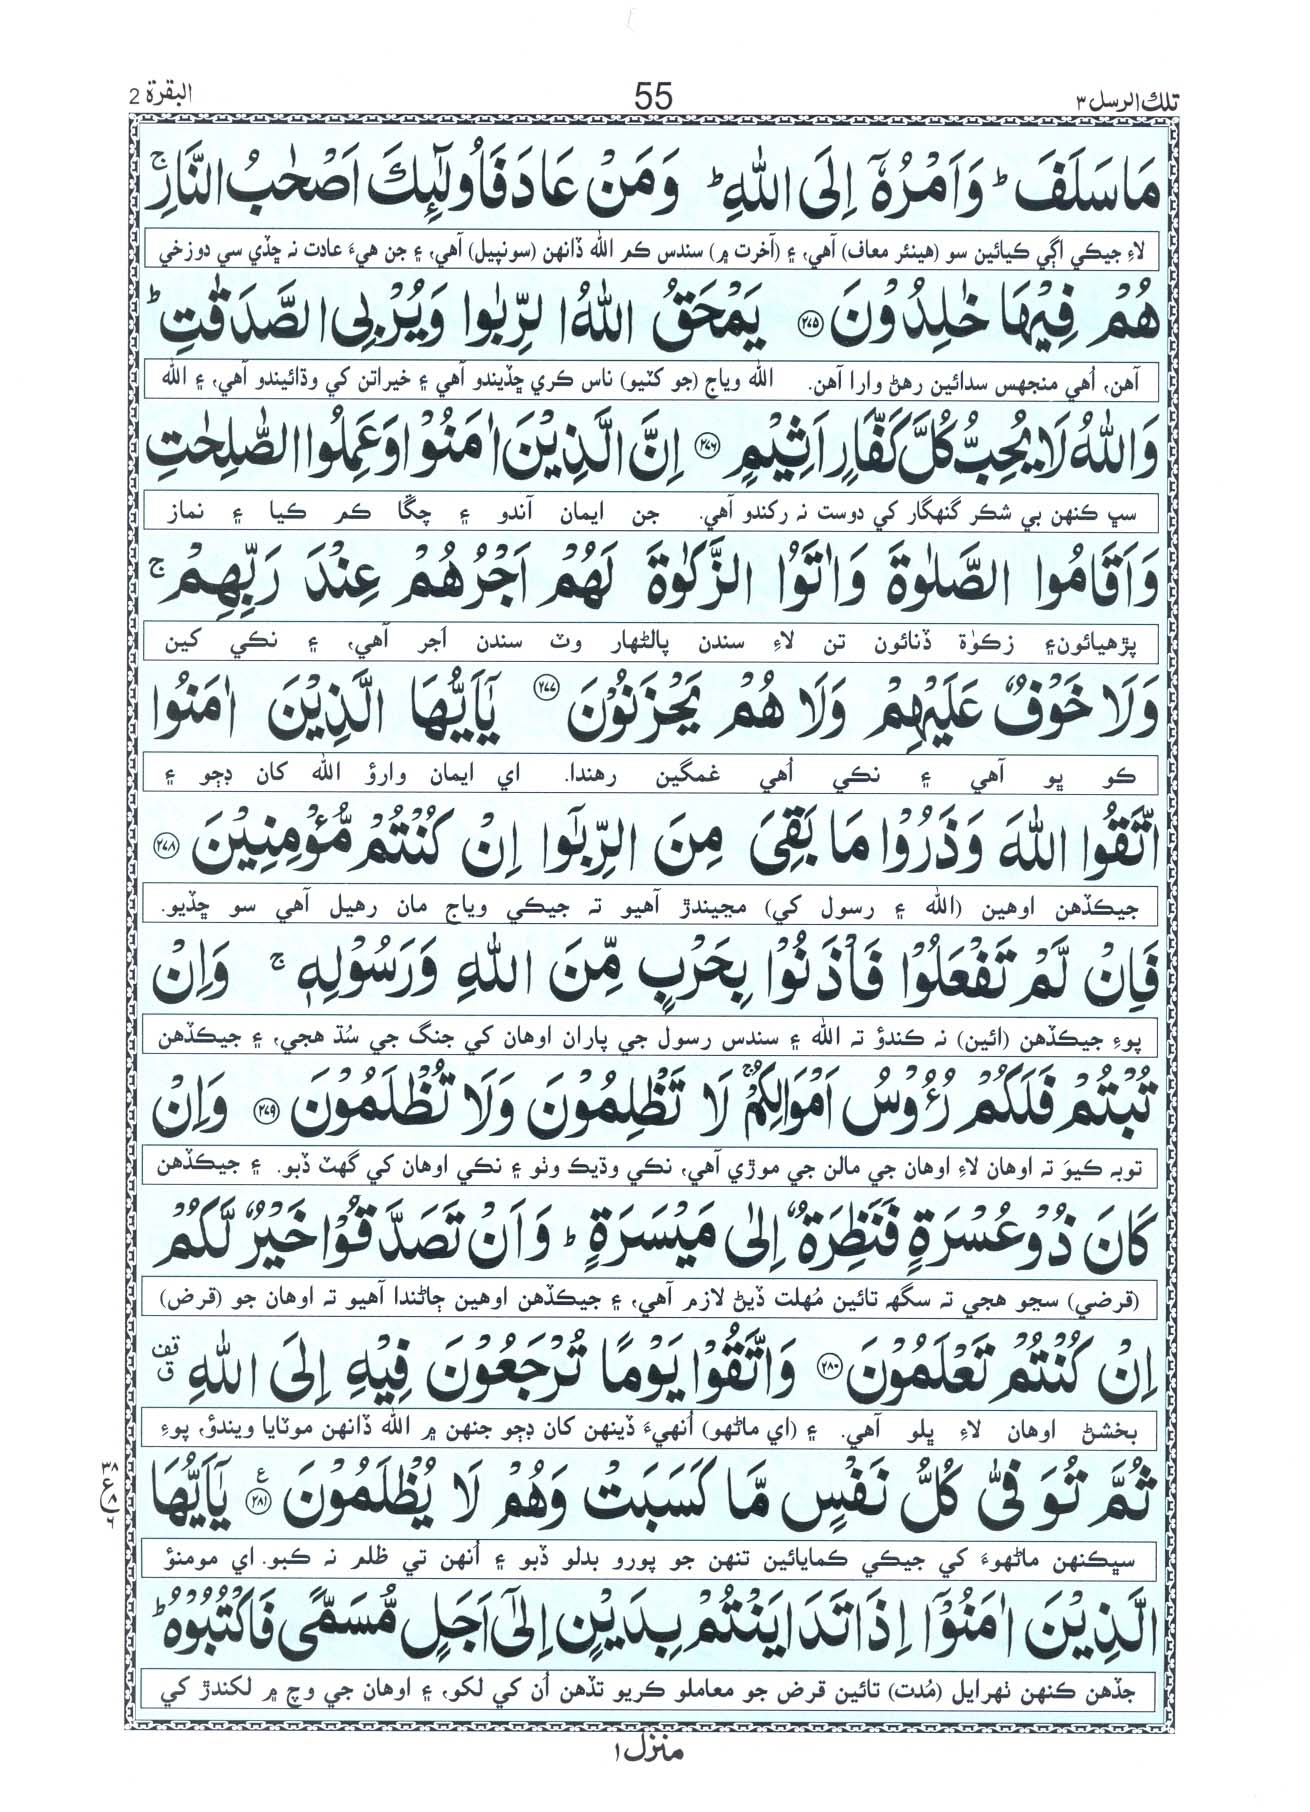 تلك الرسل ٣
55
البقرة 2
مَا سَلَفَ ؕ وَاَمْرُهٗۤ اِلَى اللّٰهِ ؕ وَمَنْ عَادَ فَاُولٰٓئِكَ اَصْحٰبُ النَّارِ ۚ
لاءِ جيڪي اڳي ڪيائين سو (هينئر معاف) آهي، ۽ (آخرت ۾) سندس ڪم الله ڏانهن (سونپيل) آهي، ۽ جن هيءَ عادت نہ ڇڏي سي دوزخي
هُمْ فِيْهَا خٰلِدُوْنَ ﴿۲۷۵﴾ يَمْحَقُ اللّٰهُ الرِّبٰوا وَيُرْبِى الصَّدَقٰتِ ؕ
آهن، اُهي منجهس سدائين رهڻ وارا آهن. الله وياج (جو کٽيو) ناس ڪري ڇڏيندو آهي ۽ خيراتن کي وڌائيندو آهي، ۽ الله
وَاللّٰهُ لَا يُحِبُّ كُلَّ كَفَّارٍ اَثِيْمٍ ﴿۲۷۶﴾ اِنَّ الَّذِيْنَ اٰمَنُوْا وَعَمِلُوا الصّٰلِحٰتِ
سڀ ڪنهن بي شڪر گنهگار کي دوست نہ رکندو آهي. جن ايمان آندو ۽ چڱا ڪم ڪيا ۽ نماز
وَاَقَامُوا الصَّلٰوةَ وَاٰتَوُا الزَّكٰوةَ لَهُمْ اَجْرُهُمْ عِنْدَ رَبِّهِمْ ۚ
پڙهيائون۽ زڪوٰة ڏنائون تن لاءِ سندن پالڻهار وٽ سندن اَجر آهي، ۽ نڪي کين
وَلَا خَوْفٌ عَلَيْهِمْ وَلَا هُمْ يَحْزَنُوْنَ ﴿۲۷۷﴾ يٰۤاَيُّهَا الَّذِيْنَ اٰمَنُوا
ڪو ڀو آهي ۽ نڪي اُهي غمگين رهندا. اي ايمان وارؤ الله کان ڊڄو ۽
اتَّقُوا اللّٰهَ وَذَرُوْا مَا بَقِىَ مِنَ الرِّبٰۤوا اِنْ كُنْتُمْ مُّؤْمِنِيْنَ ﴿۲۷۸﴾
جيڪڏهن اوهين (الله ۽ رسول کي) مڃيندڙ آهيو تہ جيڪي وياج مان رهيل آهي سو ڇڏيو.
فَاِنْ لَّمْ تَفْعَلُوْا فَاْذَنُوْا بِحَرْبٍ مِّنَ اللّٰهِ وَرَسُوْلِهٖ ۚ وَاِنْ
پوءِ جيڪڏهن (ائين) نہ ڪندؤ تہ الله ۽ سندس رسول جي پاران اوهان کي جنگ جي سُڌ هجي، ۽ جيڪڏهن
تُبْتُمْ فَلَكُمْ رُءُوْسُ اَمْوَالِكُمْ ۚ لَا تَظْلِمُوْنَ وَلَا تُظْلَمُوْنَ ﴿۲۷۹﴾ وَاِنْ
توبہ ڪيوَ تہ اوهان لاءِ اوهان جي مالن جي موڙي آهي، نڪي وڌيڪ وٺو ۽ نڪي اوهان کي گهٽ ڏبو. ۽ جيڪڏهن
كَانَ ذُوْ عُسْرَةٍ فَنَظِرَةٌ اِلٰى مَيْسَرَةٍ ؕ وَاَنْ تَصَدَّقُوْا خَيْرٌ لَّكُمْ
(قرضي) سڃو هجي تہ سگهہ تائين مُهلت ڏيڻ لازم آهي، ۽ جيڪڏهن اوهين ڄاڻندا آهيو تہ اوهان جو (قرض)
اِنْ كُنْتُمْ تَعْلَمُوْنَ ﴿۲۸۰﴾ وَاتَّقُوْا يَوْمًا تُرْجَعُوْنَ فِيْهِ اِلَى اللّٰهِ
بخشڻ اوهان لاءِ ڀلو آهي. ۽ (اي ماڻهو) اُنهيءَ ڏينهن کان ڊڄو جنهن ۾ الله ڏانهن موٽايا ويندؤ، پوءِ
ثُمَّ تُوَفّٰى كُلُّ نَفْسٍ مَّا كَسَبَتْ وَهُمْ لَا يُظْلَمُوْنَ ﴿۲۸۱﴾ يٰۤاَيُّهَا
سڀڪنهن ماڻهوءَ کي جيڪي ڪمايائين تنهن جو پورو بدلو ڏبو ۽ اُنهن تي ظلم نہ ڪبو. اي مومنؤ
الَّذِيْنَ اٰمَنُوْۤا اِذَا تَدَايَنْتُمْ بِدَيْنٍ اِلٰۤى اَجَلٍ مُّسَمًّى فَاكْتُبُوْهُ ؕ
جڏهن ڪنهن ٺهرايل (مُدت) تائين قرض جو معاملو ڪريو تڏهن اُن کي لکو، ۽ اوهان جي وچ ۾ لکندڙ کي
منزل ١